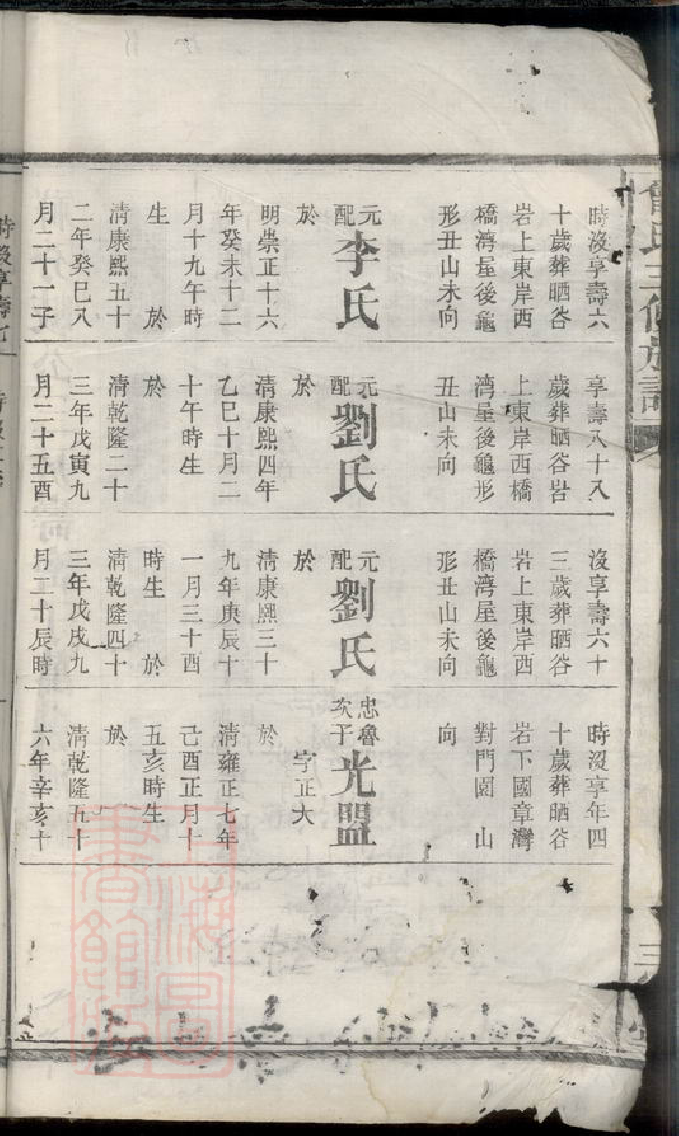 曾氏三修族譜
時沒享壽六
十歲葬晒谷
岩上東岸西
橋湾屋後龜
形丑山未向
元配李氏
於
明崇正十六
年癸未十二
月十九午時
生於
清康熙五十
二年癸巳八
月二十一子
享壽八十八
歲葬晒谷岩
上東岸西橋
湾屋後龜形
丑山未向
元配劉氏
於
清康熙四年
乙巳十月二
十午時生
於
清乾隆二十
三年戊寅九
月二十五酉
沒享壽六十
三歲葬晒谷
岩上東岸西
橋湾屋後龜
形丑山未向
元配劉氏
於
清康熙三十
九年庚辰十
一月三十酉
時生於
清乾隆四十
三年戊戌九
月二十辰時
時沒享年四
十歲葬晒谷
岩下國章灣
對門園山
向
忠魯次子光盟
字正大
於
清雍正七年
己酉正月十
五亥時生
於
清乾隆五十
六年辛亥十
上海圖書館藏